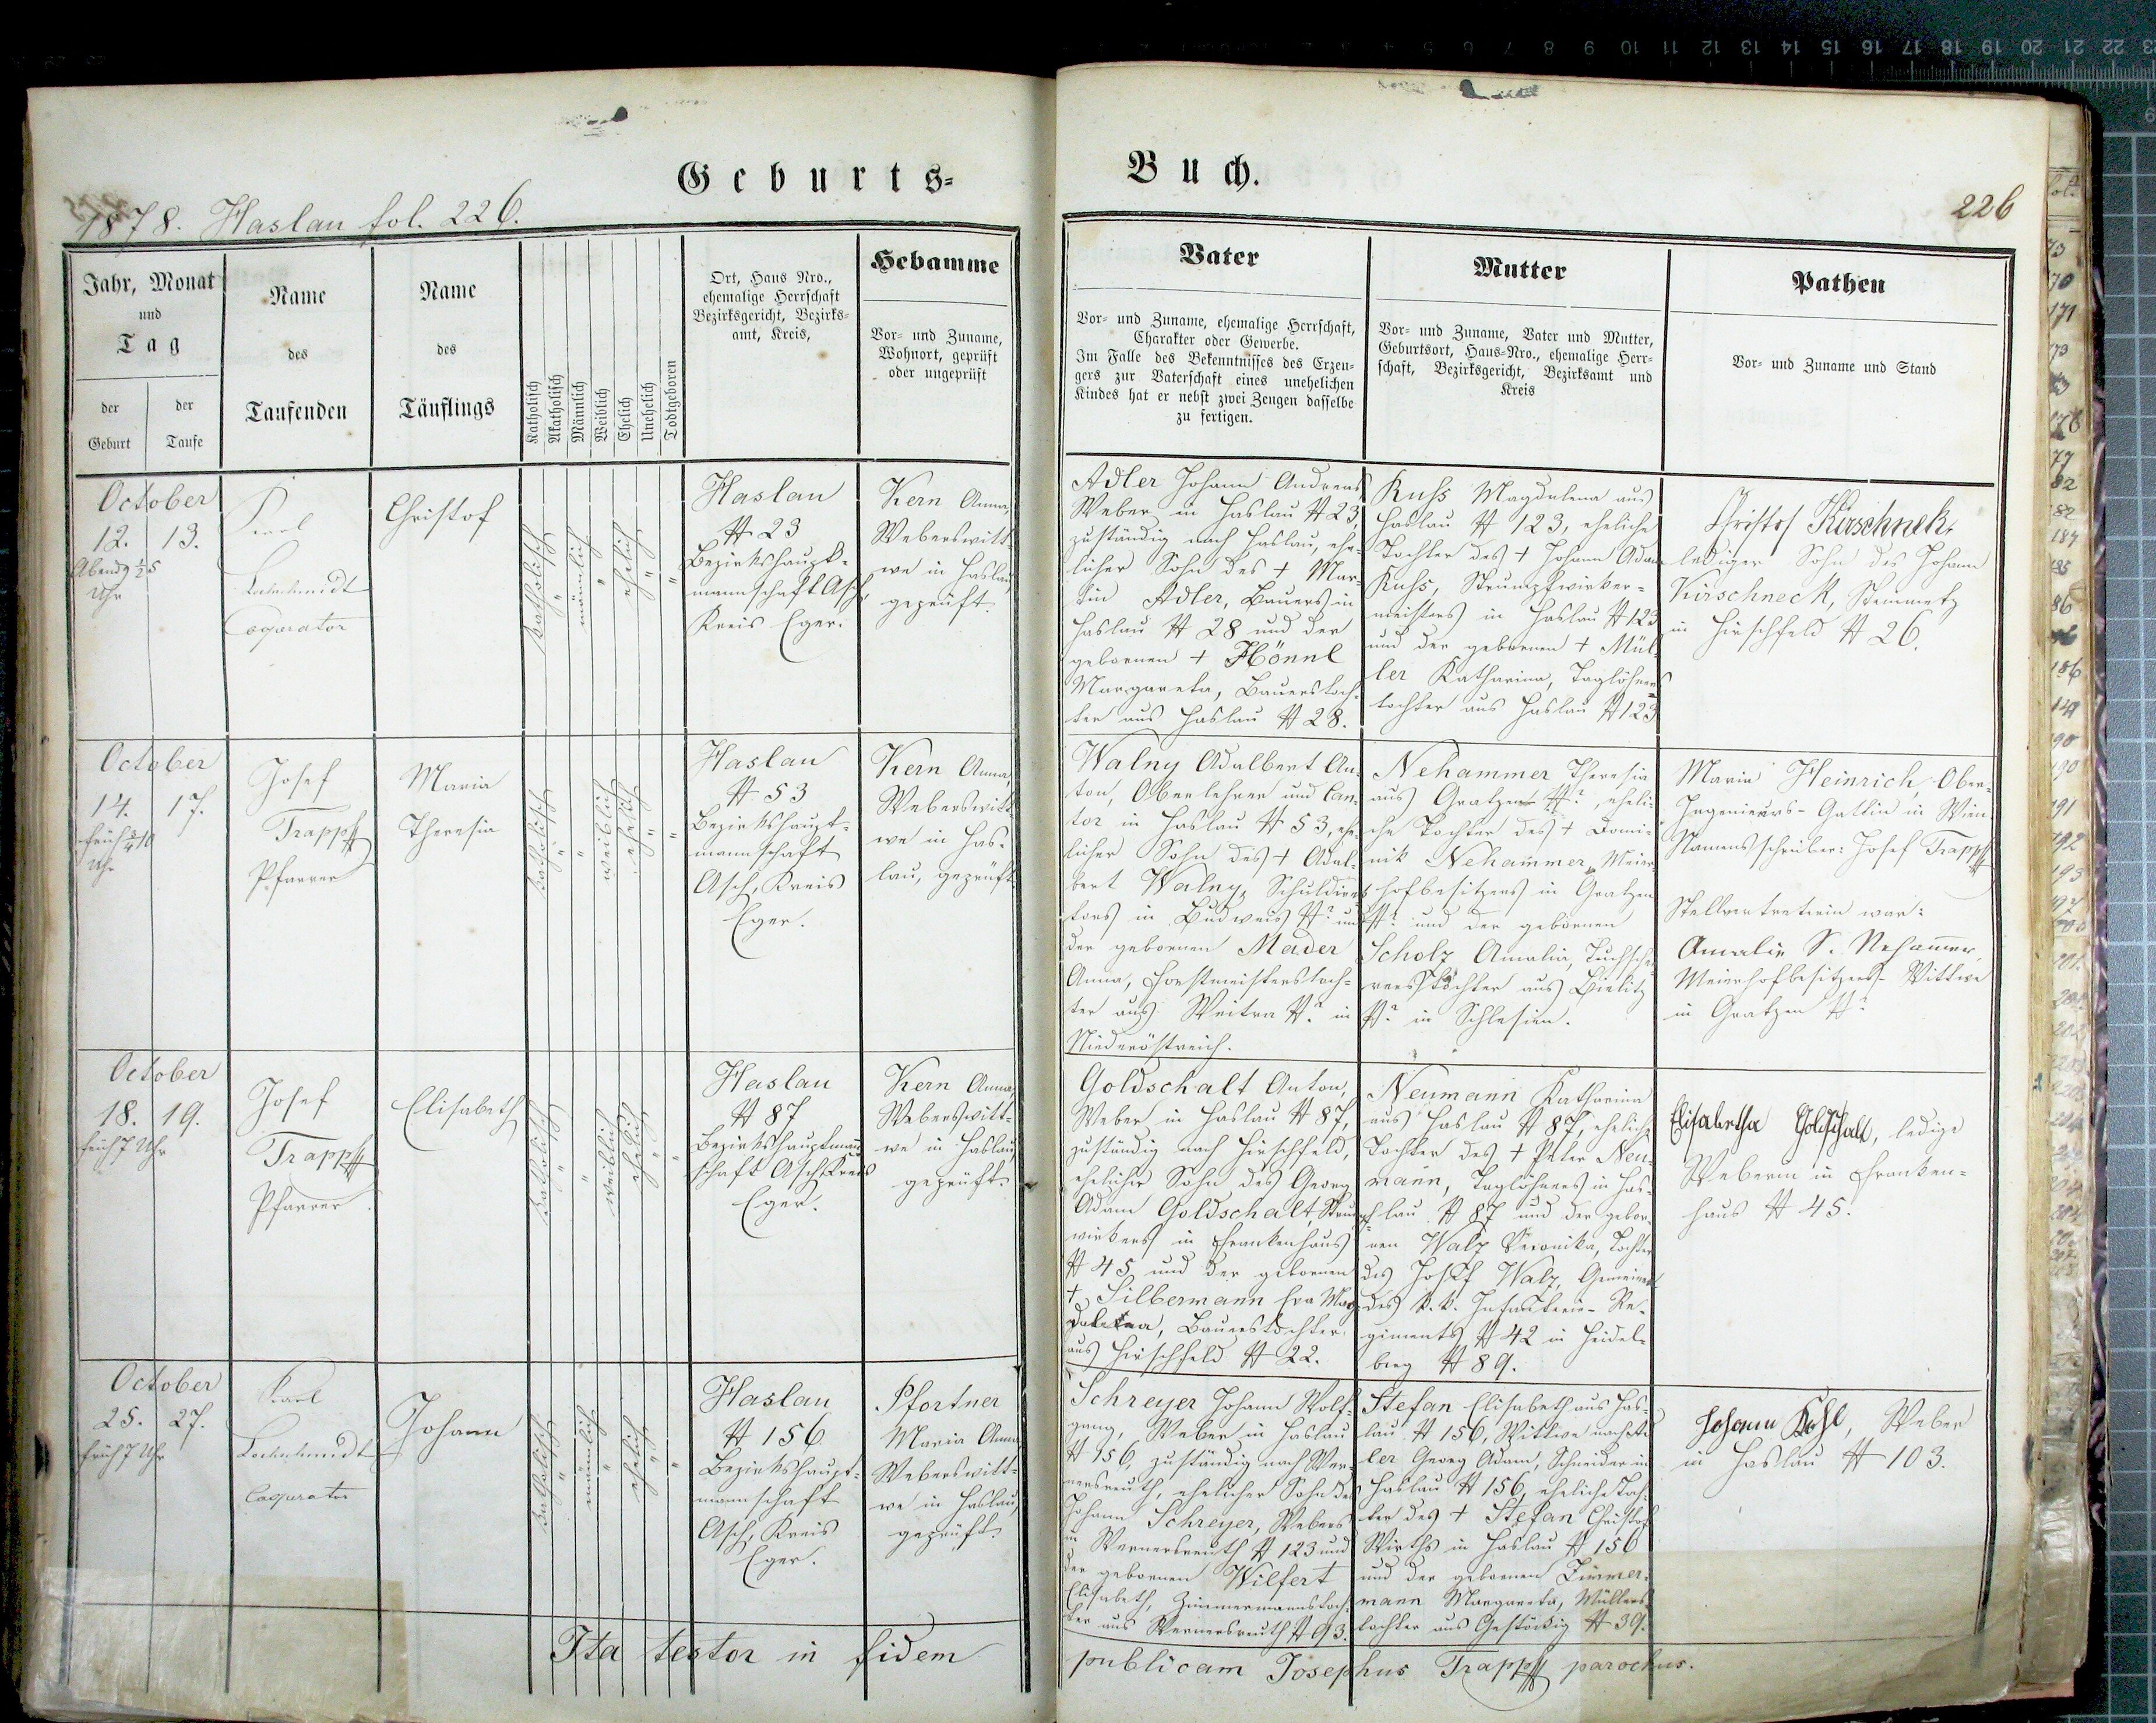 Geburts-
Buch.
1878. Haslau fol. 226.
226
Jahr, Monat
und
Tag
der Geburt
der Taufe
Name
des
Taufenden
Name
des
Täuflings
Katholisch
Akatholisch
Männlich
Weiblich
Ehelich
Unehelich
Todtgeboren
Ort, Haus Nro.,
ehemalige Herrschaft
Bezirksgericht, Bezirks-
amt, Kreis,
Hebamme
Vor- und Zuname,
Wohnort, geprüft
oder ungeprüft
Vater
Vor- und Zuname, ehemalige Herrschaft,
Charakter oder Gewerbe.
Im Falle des Bekenntnisses des Erzeu-
gers zur Vaterschaft eines unehelichen
Kindes hat er nebst zwei Zeugen dasselbe
zu fertigen.
Mutter
Vor- und Zuname, Vater und Mutter,
Geburtsort, Haus-Nro., ehemalige Herr-
schaft, Bezirksgericht, Bezirksamt und
Kreis
Pathen
Vor- und Zuname und Stand
October
12. 13.
Abends ½5
Uhr
Karl
Cooperator
Christof
katholisch
männlich
ehelich
Haslau
# 23
Bezirkshaupt-
mannschaft Asch,
Kreis Eger.
Kern Anna,
Weberswitt-
we in Haslau,
geprüft.
Adler Johann Andreas
Weber in Haslau # 23,
zuständig nach Haslau, ehe-
licher Sohn des + Mar-
tin Adler, Bauers in
Haslau # 28 und der
gebornen + Hönnl
Margareta, Bauerstoch-
ter aus Haslau # 28.
Kuhs Magdalena aus
Haslau # 123, eheliche
Tochter des + Johann Adam
Kuhs, Strumpfwirker-
meisters in Haslau # 123
und der gebornen + Mül-
ler Katharina, Taglöhners
tochter aus Haslau # 123
Christof Kirschnek,
lediger Sohn des Johann
Kirschneck, Steinmetz
in Hirschfeld # 26.
October
14. 17.
früh ¾10
Uhr
Josef
Trapp
Pfarrer
Maria
Theresia
katholisch
weiblich
ehelich
Haslau
# 53
Bezirkshaupt-
mannschaft
Asch, Kreis
Eger.
Kern Anna,
Weberswitt-
we in Has-
lau, geprüft.
Walny Adalbert An-
ton, Oberlehrer und Can-
tor in Haslau # 53, ehe-
licher Sohn des + Adal-
bert Walny, Schuldirek-
tors in Budweis #? und
der gebornen Mader
Anna, Forstmeisterstoch-
ter aus Weitra #? in
Niederöstreich.
Nehammer Theresia
aus Gratzen #?, eheli-
che Tochter des + Domi-
nik Nehammer, Meier-
hofbesitzers in Gratzen
#? und der gebornen
Scholz Amalia, Tuchsche-
rerstochter aus Bielitz
#? in Schlesien.
Maria Heinrich, Ober-
Ingenieurs-Gattin in Wien
Namensschreiber: Josef Trapp
Stellvertreterin war:
Amalie S. Nehammer,
Meierhofbesitzers-Wittwe
in Gratzen #?
October
18. 19.
früh 7 Uhr
Josef
Trapp
Pfarrer
Elisabeth
katholisch
weiblich
ehelich
Haslau
# 87
Bezirkshauptmann-
schaft Asch, Kreis
Eger.
Kern Anna,
Weberswitt-
we in Haslau,
geprüft.
Goldschalt Anton,
Weber in Haslau # 87,
zuständig nach Hirschfeld,
ehelicher Sohn des Georg
Adam Goldschalt, Strumpf-
wirkers in Frankenhaus
# 45 und der gebornen
+ Silbermann Eva Mag-
dalena, Bauerstochter
aus Hirschfeld # 22.
Neumann Katharina
aus Haslau # 87, eheliche
Tochter des + Peter Neu-
mann, Taglöhners in Has-
lau # 87 und der gebor-
nen Walz Veronika, Tochter
des Josef Walz, Gemeinen
des k.k. Infanterie-Re-
giments # 42 in Heidel-
berg # 89.
Elisabetha Goldschalt, ledige
Weberin in Franken-
haus # 45.
October
25. 27.
früh 7 Uhr
Karl
Cooperator
Johann
katholisch
männlich
ehelich
Haslau
# 156
Bezirkshaupt-
mannschaft
Asch, Kreis
Eger.
Pfortner
Maria Anna
Weberswitt-
we in Haslau,
geprüft.
Schreyer Johann Wolf-
gang, Weber in Haslau
# 156, zuständig nach Wer-
nersreuth, ehelicher Sohn des
Johann Schreyer, Webers
in Wernersreuth # 123 und
der gebornen Wilfert
Elisabeth, Zimmermannstoch-
ter aus Wernersreuth # 93.
Stefan Elisabeth aus Has-
lau # 156, Wittwe nach
ler Georg Adam, Schneider in
Haslau # 156, eheliche Toch-
ter des + Stefan Christof
Wirths in Haslau # 156
und der gebornen Zimmer-
mann Margareta, Müllers-
tochter aus Gestöckig # 39.
Johann Kohl, Weber
in Haslau # 103.
Ita testor in fidem
publicam Josephus Trapp parochus.